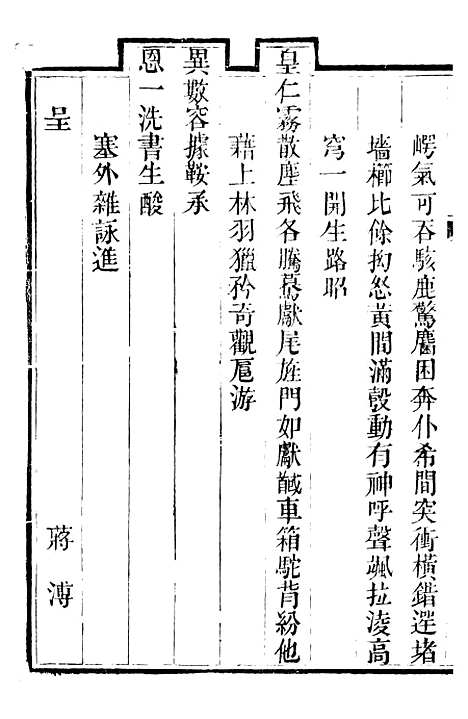 崿氣可吞駭鹿驚麕困奔仆希間突衝橫錯遌堵
墻櫛比餘拘怒黃間滿彀動有神呼聲颯拉淩高
穹一開生路昭
皇仁霧散塵飛各騰驀獻尾旌門如獻馘車箱駝背紛他
藉上林羽獵矜奇觀扈游
異數容據鞍承
恩一洗書生酸
塞外雜詠進
呈
蔣溥